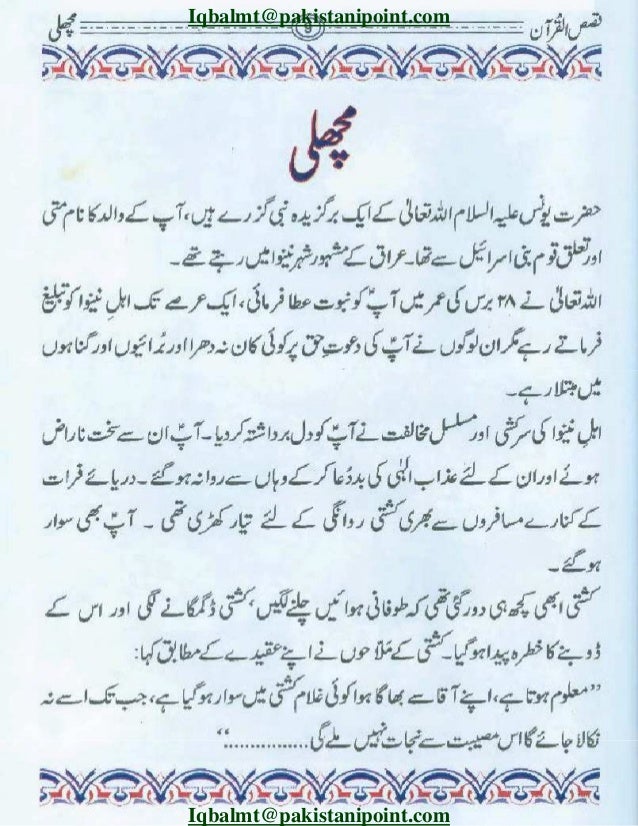 Iqbalmt@pakistanipoint.com
قصص القرآن 9 مچھلی
مچھلی
حضرت یونس علیہ السلام اللہ تعالیٰ کے ایک برگزیدہ نبی گزرے ہیں، آپ کے والد کا نام متی
اور تعلق قوم بنی اسرائیل سے تھا۔ عراق کے مشہور شہر نینوا میں رہتے تھے۔
اللہ تعالیٰ نے ۲۸ برس کی عمر میں آپؑ کو نبوت عطا فرمائی، ایک عرصے تک اہلِ نینوا کو تبلیغ
فرماتے رہے مگر ان لوگوں نے آپؑ کی دعوتِ حق پر کوئی کان نہ دھرا اور بُرائیوں اور گناہوں
میں مبتلا رہے۔
اہلِ نینوا کی سرکشی اور مسلسل مخالفت نے آپؑ کو دل برداشتہ کر دیا۔ آپؑ ان سے سخت ناراض
ہوئے اور ان کے لئے عذاب الٰہی کی بددُعا کر کے وہاں سے روانہ ہو گئے۔ دریائے فرات
کے کنارے مسافروں سے بھری کشتی روانگی کے لئے تیار کھڑی تھی ۔ آپؑ بھی سوار
ہو گئے۔
کشتی ابھی کچھ ہی دور گئی تھی کہ طوفانی ہوائیں چلنے لگیں، کشتی ڈگمگانے لگی اور اس کے
ڈوبنے کا خطرہ پیدا ہو گیا۔ کشتی کے ملاحوں نے اپنے عقیدے کے مطابق کہا:
”معلوم ہوتا ہے، اپنے آقا سے بھاگا ہوا کوئی غلام کشتی میں سوار ہو گیا ہے، جب تک اسے نہ
نکالا جائے گا اس مصیبت سے نجات نہیں ملے گی ................“
Iqbalmt@pakistanipoint.com